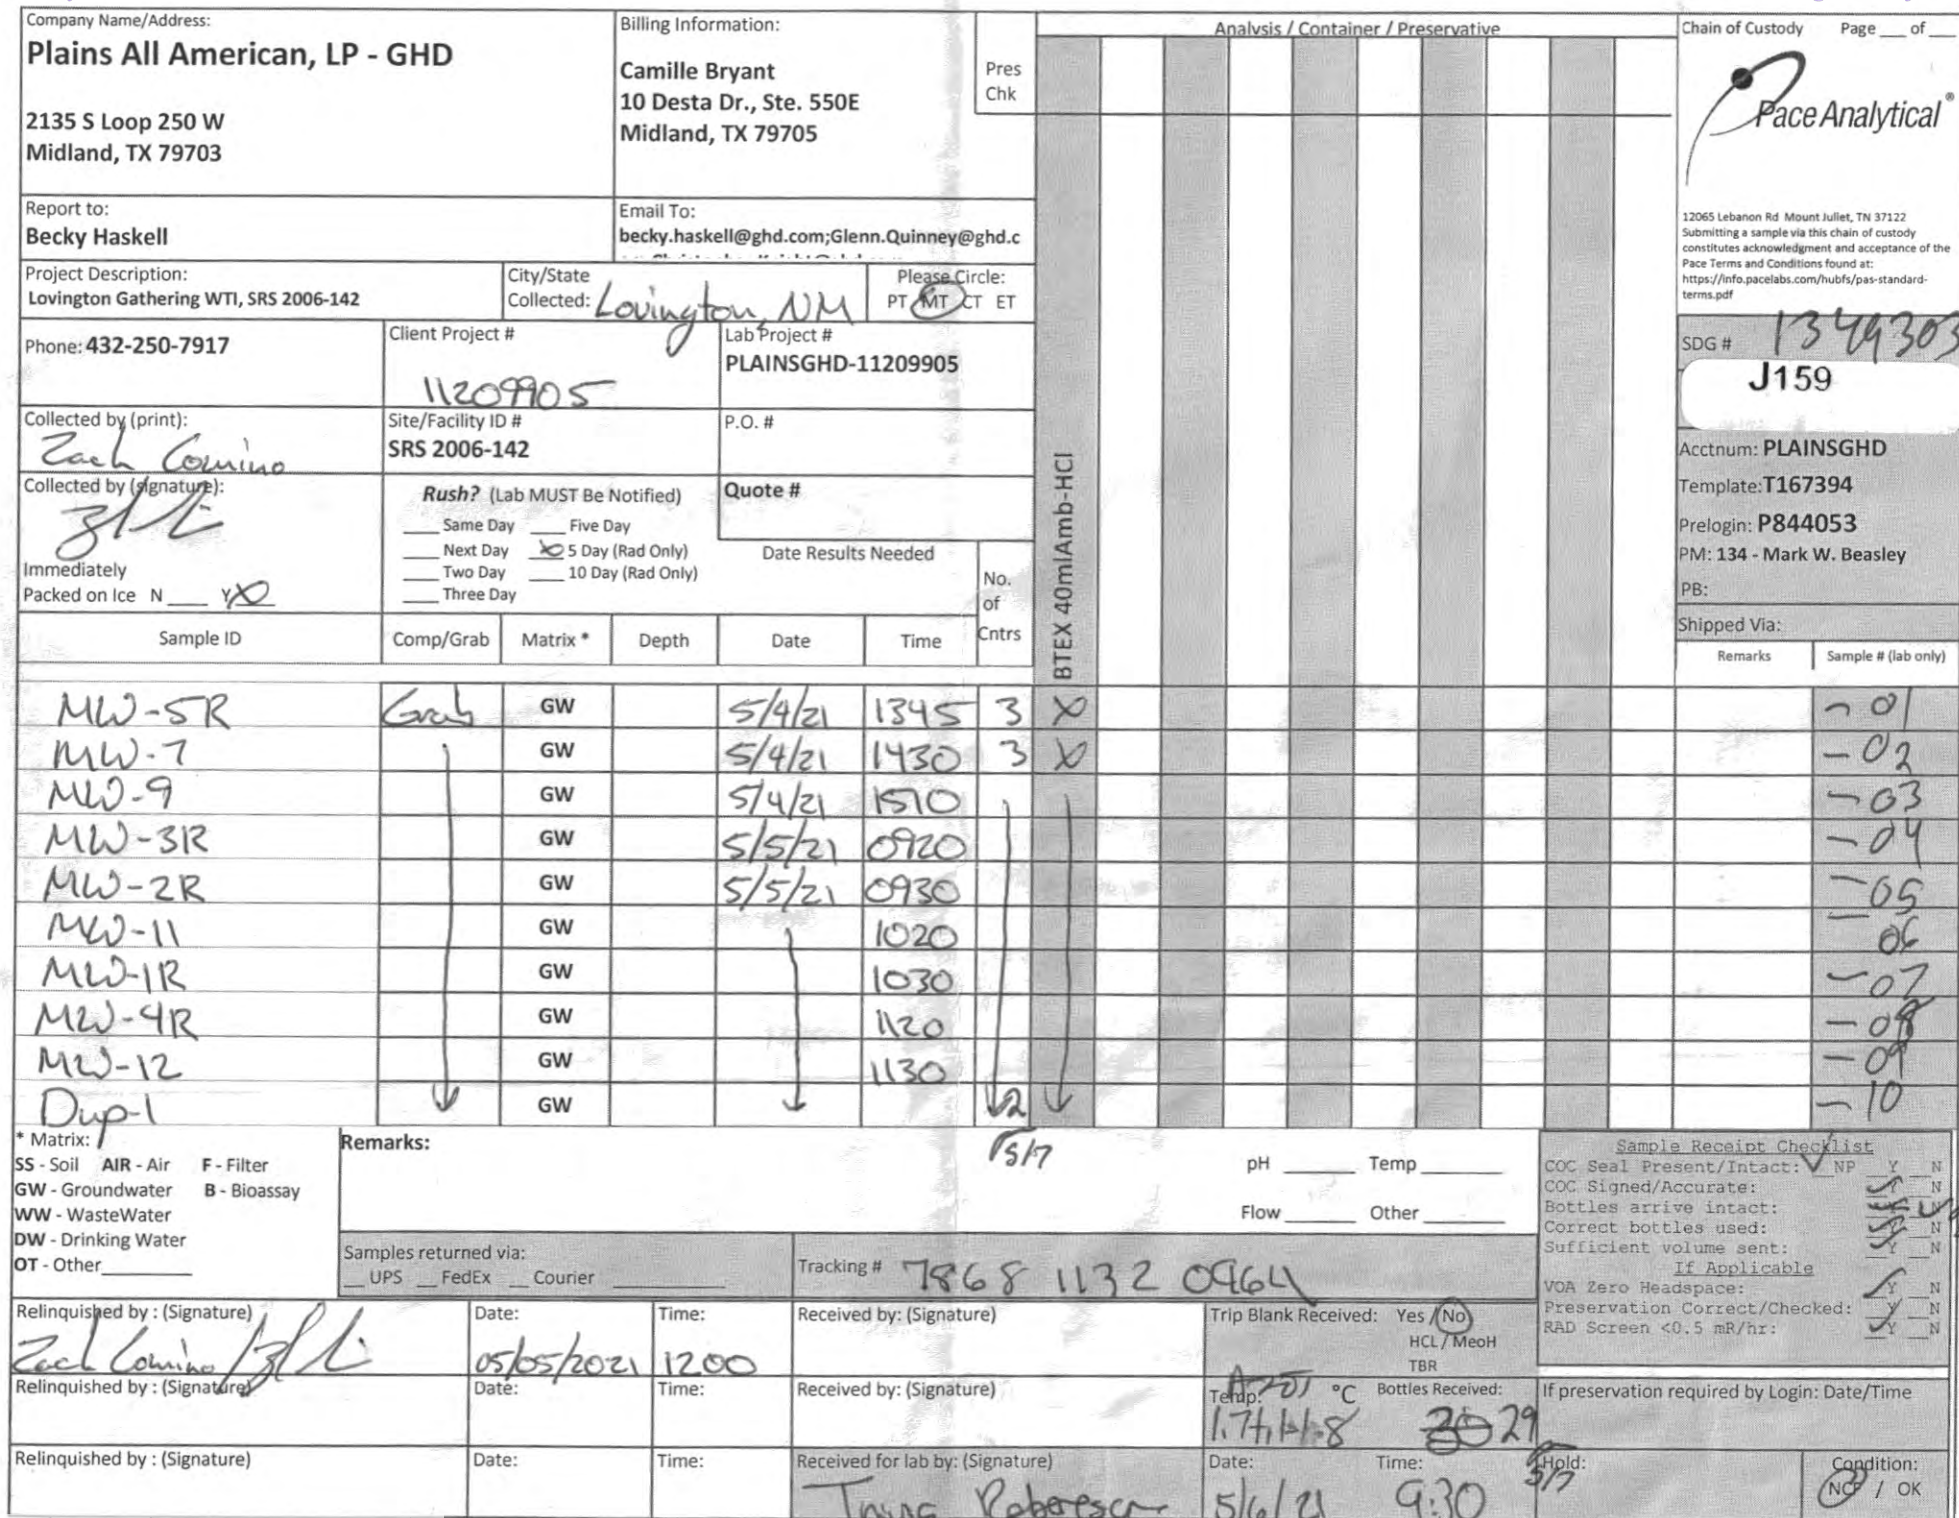 Company Name/Address:
Plains All American, LP - GHD
2135 S Loop 250 W
Midland, TX 79703
Billing Information:
Camille Bryant
10 Desta Dr., Ste. 550E
Midland, TX 79705
Pres
Chk
Analysis / Container / Preservative
Chain of Custody Page ___ of ___
Pace Analytical®
12065 Lebanon Rd Mount Juliet, TN 37122
Submitting a sample via this chain of custody
constitutes acknowledgment and acceptance of the
Pace Terms and Conditions found at:
https://info.pacelabs.com/hubfs/pas-standard-
terms.pdf
Report to:
Becky Haskell
Email To:
becky.haskell@ghd.com;Glenn.Quinney@ghd.c
Project Description:
Lovington Gathering WTI, SRS 2006-142
City/State
Collected: Lovington, NM
Please Circle:
PT MT CT ET
Phone: 432-250-7917
Client Project #
11209905
Lab Project #
PLAINSGHD-11209905
SDG # 1349303
J159
Collected by (print):
Zach Comino
Site/Facility ID #
SRS 2006-142
P.O. #
Acctnum: PLAINSGHD
Template:T167394
Prelogin: P844053
PM: 134 - Mark W. Beasley
PB:
Collected by (signature):
Rush? (Lab MUST Be Notified)
___ Same Day ___ Five Day
___ Next Day X 5 Day (Rad Only)
___ Two Day ___ 10 Day (Rad Only)
___ Three Day
Quote #
Date Results Needed
Immediately
Packed on Ice N ___ Y X
No.
of
Cntrs
BTEX 40mlAmb-HCl
Shipped Via:
Sample ID Comp/Grab Matrix * Depth Date Time Remarks Sample # (lab only)
MW-5R Grab GW 5/4/21 1345 3 X - 01
MW-7 GW 5/4/21 1430 3 X - 02
MW-9 GW 5/4/21 1510 - 03
MW-3R GW 5/5/21 0920 - 04
MW-2R GW 5/5/21 0930 - 05
MW-11 GW 1020 - 06
MW-1R GW 1030 - 07
MW-4R GW 1120 - 08
MW-12 GW 1130 - 09
Dup-1 GW 2 - 10
* Matrix:
SS - Soil AIR - Air F - Filter
GW - Groundwater B - Bioassay
WW - WasteWater
DW - Drinking Water
OT - Other
Remarks:
5/7
pH ___ Temp ___
Flow ___ Other ___
Sample Receipt Checklist
COC Seal Present/Intact: NP Y N
COC Signed/Accurate: Y N
Bottles arrive intact: Y N
Correct bottles used: Y N
Sufficient volume sent: Y N
If Applicable
VOA Zero Headspace: Y N
Preservation Correct/Checked: Y N
RAD Screen <0.5 mR/hr: Y N
Samples returned via:
__ UPS __ FedEx __ Courier
Tracking # 7868 1132 0964
Relinquished by : (Signature)
Zach Comino
Date:
05/05/2021
Time:
1200
Received by: (Signature)
Trip Blank Received: Yes / No
HCL / MeoH
TBR
Relinquished by : (Signature)
Date:
Time:
Received by: (Signature)
Temp: °C
Bottles Received:
29
If preservation required by Login: Date/Time
Relinquished by : (Signature)
Date:
Time:
Received for lab by: (Signature)
Date:
5/6/21
Time:
9:30
5/7
Hold:
Condition:
NCF / OK